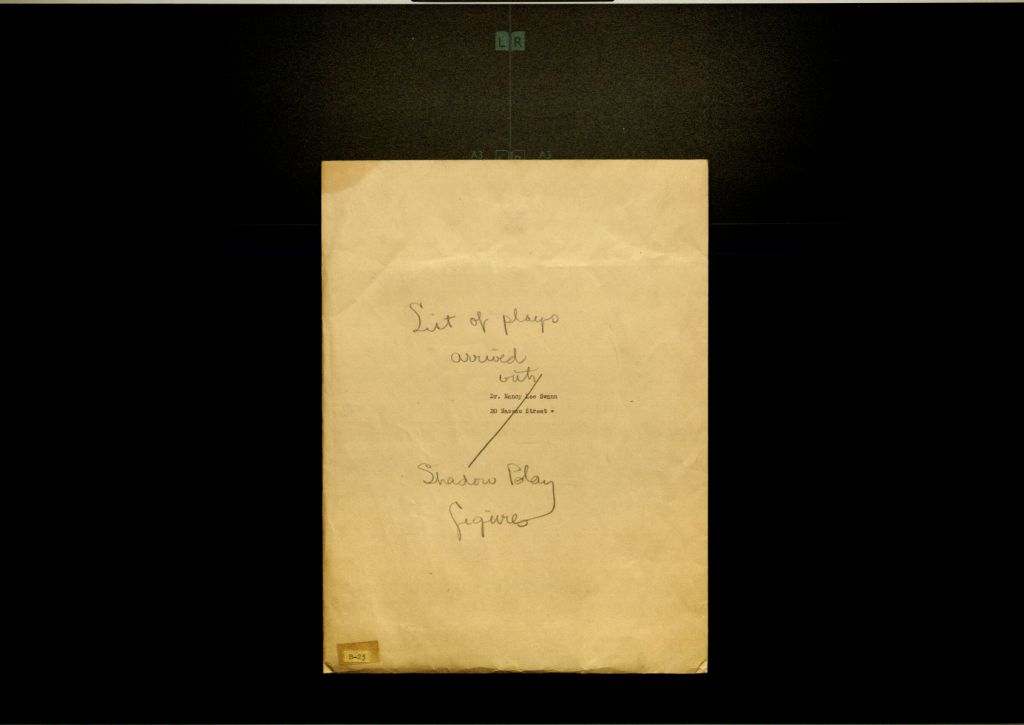 L R
A3 L R A3
List of plays
arrived
with
Dr. Nancy Lee Swann
20 Nassau Street -
Shadow Play
figures
B-25